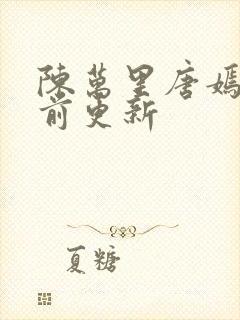 陳萬里唐嫣
前更新
夏糖